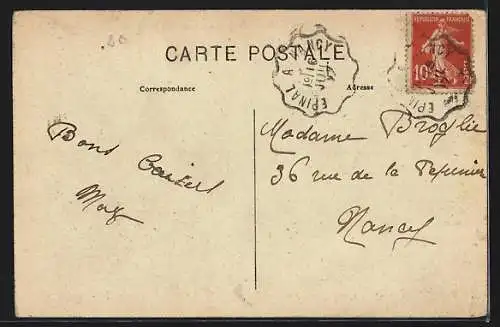 CARTE POSTALE
Correspondance
Adresse
EPINAL A NANCY
RÉPUBLIQUE FRANÇAISE
10
Bons Baisers
May
Madame Broglie
36 rue de la Pépinière
Nancy